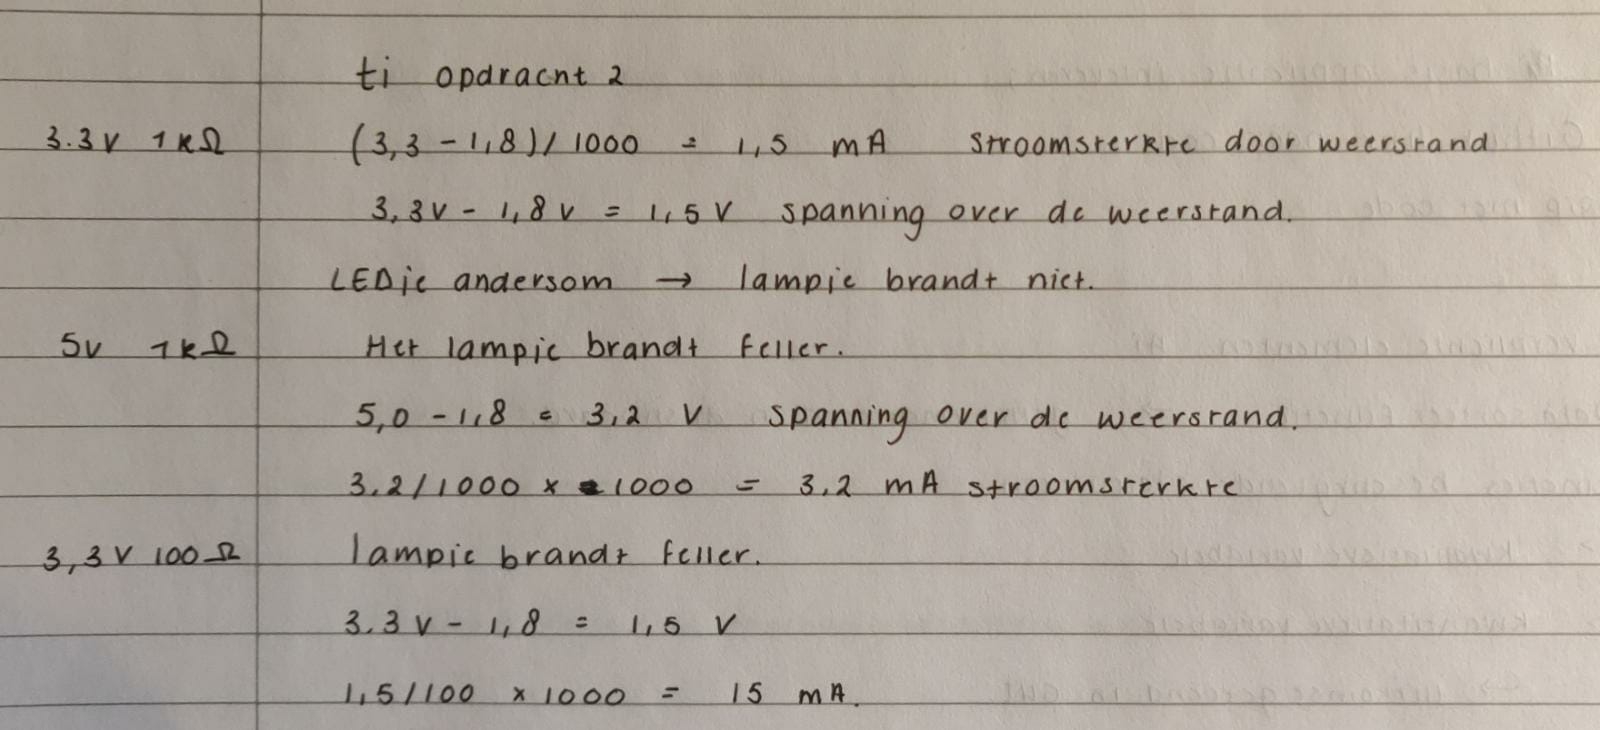 ti opdracht 2
3.3V 1kΩ (3,3 - 1,8) / 1000 = 1,5 mA stroomsterkte door weerstand
3,3V - 1,8V = 1,5V spanning over de weerstand.
LEDje andersom → lampje brandt niet.
5V 1kΩ Het lampje brandt feller.
5,0 - 1,8 = 3,2 V spanning over de weerstand.
3.2/1000 x 1000 = 3.2 mA stroomsterkte
3,3V 100Ω lampje brandt feller.
3.3V - 1,8 = 1,5 V
1,5/100 x 1000 = 15 mA.